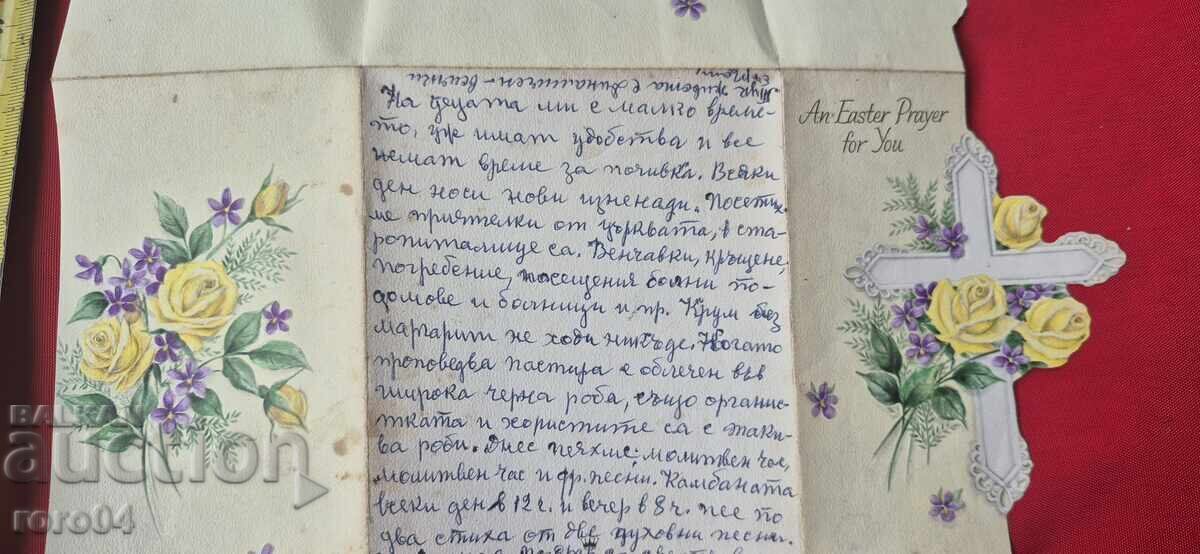 Тук живота е динамичен - всички
На децата ми е малко време-
то, уж имат удобства и все
немат време за почивка. Всяки
ден носи нови изненади. Посетих-
ме приятелки от църквата, в ста-
ропиталище са. Венчавки, кръщене,
погребение, посещения болни по
домове и болници и пр. Крум без
маргарит не ходи никъде. Когато
проповедва пастира е облечен във
широка черна роба, също органис-
тката и хористите са с таки-
ва роби. Днес пяхме: молитвен час,
молитвен час и др. песни. Камбаната
всеки ден в 12 ч. и вечер в 8 ч. пее по
два стиха от две духовни песни.
An Easter Prayer
for You
BALKAN
auction
roro04